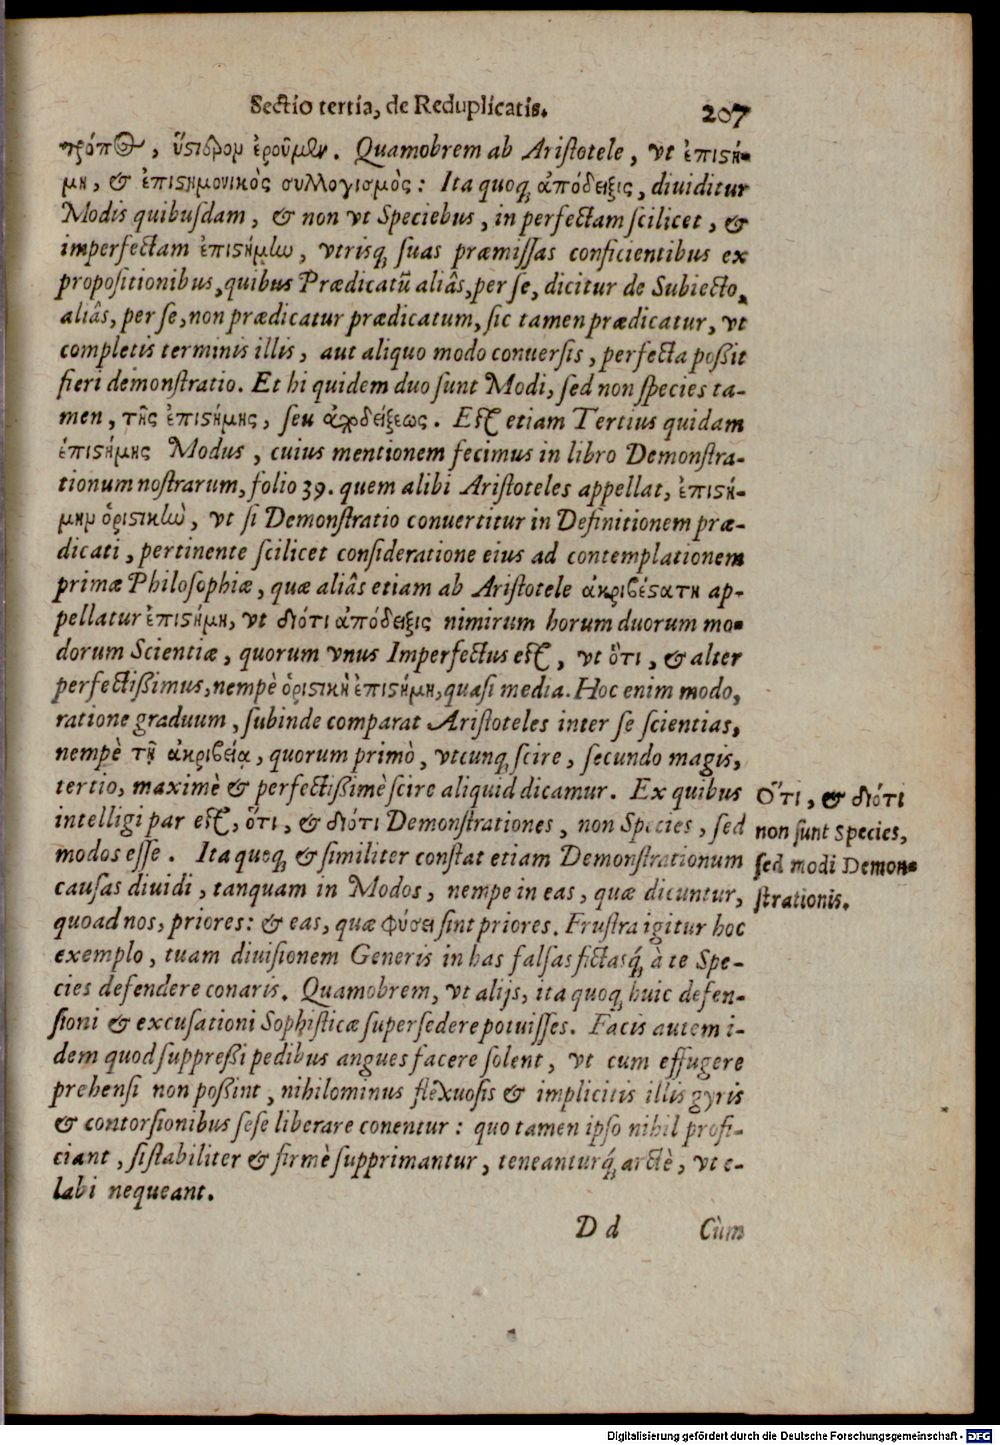 Sectio tertia, de Reduplicatis. 207
τρόπος, ὕστερομ ἐροῦμεν. Quamobrem ab Aristotele, vt ἐπιστή-
μη, & ἐπιστημονικὸς συλλογισμὸς: Ita quoq́; ἀπόδειξις, diuiditur
Modis quibusdam, & non vt Speciebus, in perfectam scilicet, &
imperfectam ἐπιστήμlω, vtrisq́; suas præmissas conficientibus ex
propositionibus, quibus Prædicatũ aliâs, per se, dicitur de Subiecto,
aliâs, per se, non prædicatur prædicatum, sic tamen prædicatur, vt
completis terminis illis, aut aliquo modo conuersis, perfecta poßit
fieri demonstratio. Et hi quidem duo sunt Modi, sed non species ta-
men, τῆς ἐπιστήμης, seu ἀποδείξεως. Est etiam Tertius quidam
ἐπιστήμης Modus, cuius mentionem fecimus in libro Demonstra-
tionum nostrarum, folio 39. quem alibi Aristoteles appellat, ἐπιστή-
μημ ὁριστικlὼ, vt si Demonstratio conuertitur in Definitionem præ-
dicati, pertinente scilicet consideratione eius ad contemplationem
primæ Philosophiæ, quæ aliâs etiam ab Aristotele ἀκριβέστατη ap-
pellatur ἐπιστήμη, vt διότι ἀπόδειξις nimirum horum duorum mo-
dorum Scientiæ, quorum vnus Imperfectus est, vt ὅτι, & alter
perfectißimus, nempè ὁριστικὴ ἐπιστήμη, quasi media. Hoc enim modo,
ratione graduum, subinde comparat Aristoteles inter se scientias,
nempè τῇ ἀκριβείᾳ, quorum primò, vtcunq́; scire, secundo magis,
tertio, maximè & perfectißimè scire aliquid dicamur. Ex quibus
intelligi par est, ὅτι, & διότι Demonstrationes, non Species, sed
modos esse. Ita quoq́; & similiter constat etiam Demonstrationum
causas diuidi, tanquam in Modos, nempe in eas, quæ dicuntur,
quoad nos, priores: & eas, quæ φύσει sint priores. Frustra igitur hoc
exemplo, tuam diuisionem Generis in has falsas fictasq́; à te Spe-
cies defendere conaris. Quamobrem, vt alijs, ita quoq́; huic defen-
sioni & excusationi Sophisticæ supersedere potuisses. Facis autem i-
dem quod suppreßi pedibus angues facere solent, vt cum effugere
prehensi non poßint, nihilominus flexuosis & implicitis illis gyris
& contorsionibus sese liberare conentur: quo tamen ipso nihil profi-
ciant, si stabiliter & firmè supprimantur, teneanturq́; arctè, vt e-
labi nequeant.
D d Cùm
Ὅτι, & διότι
non sunt Species,
sed modi Demon-
strationis.
Digitalisierung gefördert durch die Deutsche Forschungsgemeinschaft - DFG